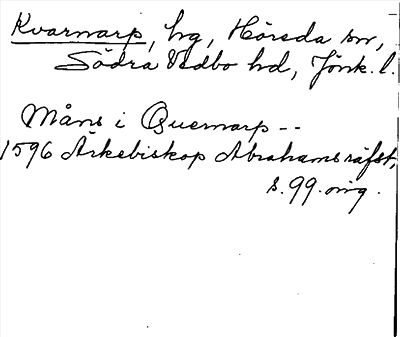 Kvarnarp, hg, Höreda sn,
Södra Vedbo hd, Jönk. l.
Måns i Quernarp --
1596 Ärkebiskop Abrahams räfst,
s. 99. orig.